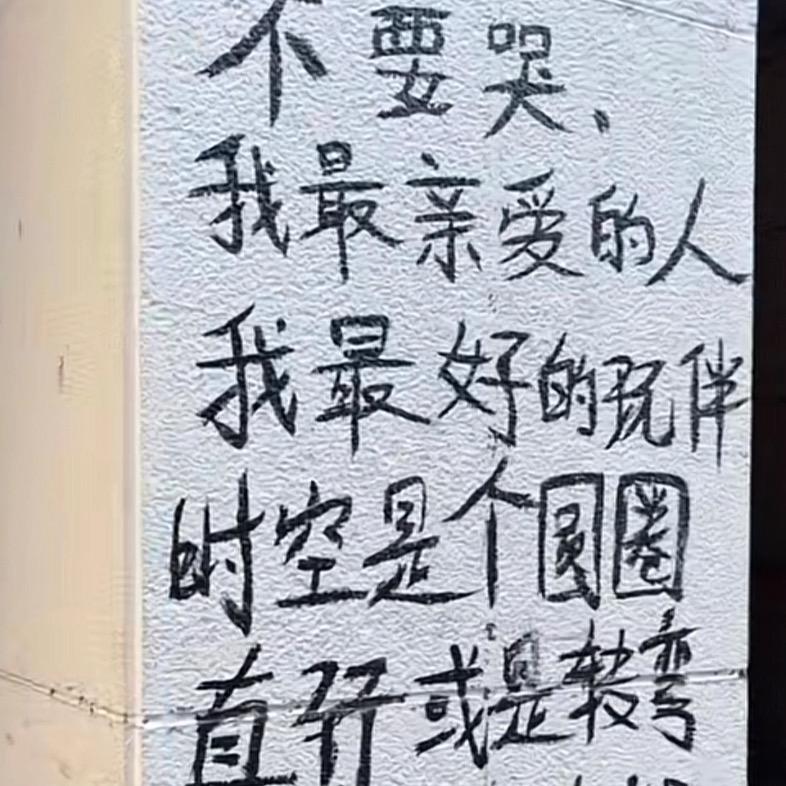 不要哭、
我最亲爱的人
我最好的玩伴
时空是个圆圈
直行或是转弯